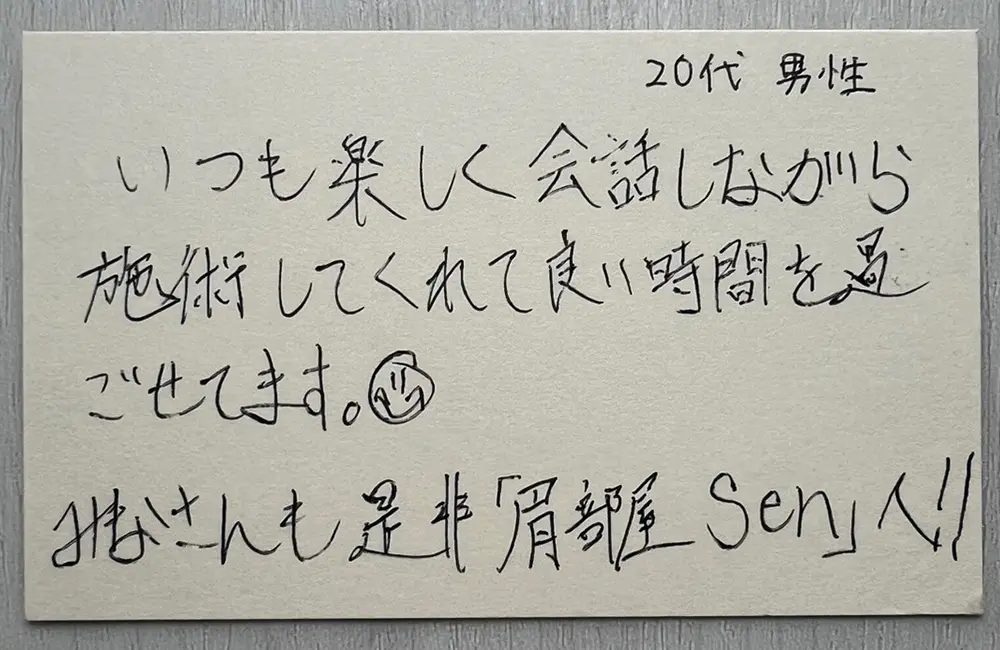 20代 男性
いつも楽しく会話しながら
施術してくれて良い時間を過
ごせてます。
みなさんも是非「眉部屋 Sen」へ!!